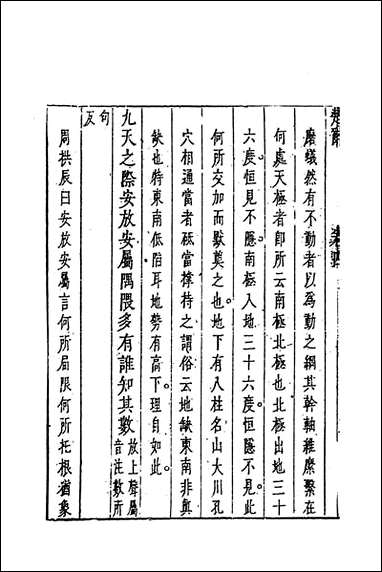 磨蟻然有不動者以爲動之綱其幹軸維縻繫在
何處天極者卽所云南極北極也北極出地三十
六度恒見不隱南極入地三十六度恒隱不見此
何所交加而默奠之也地下有八柱名山大川孔
穴相通當者砥當撐持之謂俗云地缺東南非眞
缺也特東南低陷耳地勢有高下理自如此
九天之際安放安屬隅隈多有誰知其數放上聲屬音注數所
句反
周拱辰曰安放安屬言何所局限何所托根猶象